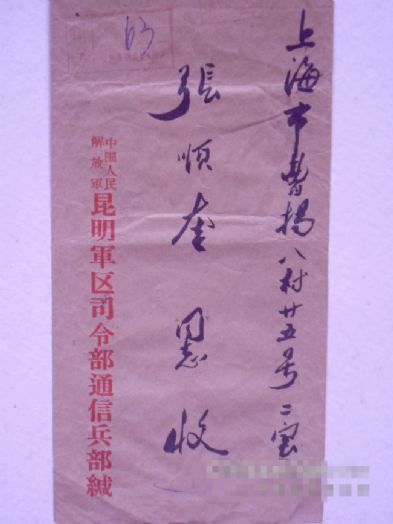 上海市曹楊八村廿五号二室
張順奎 同志 收
中国人民
解放軍
昆明軍区司令部通信兵部緘
63